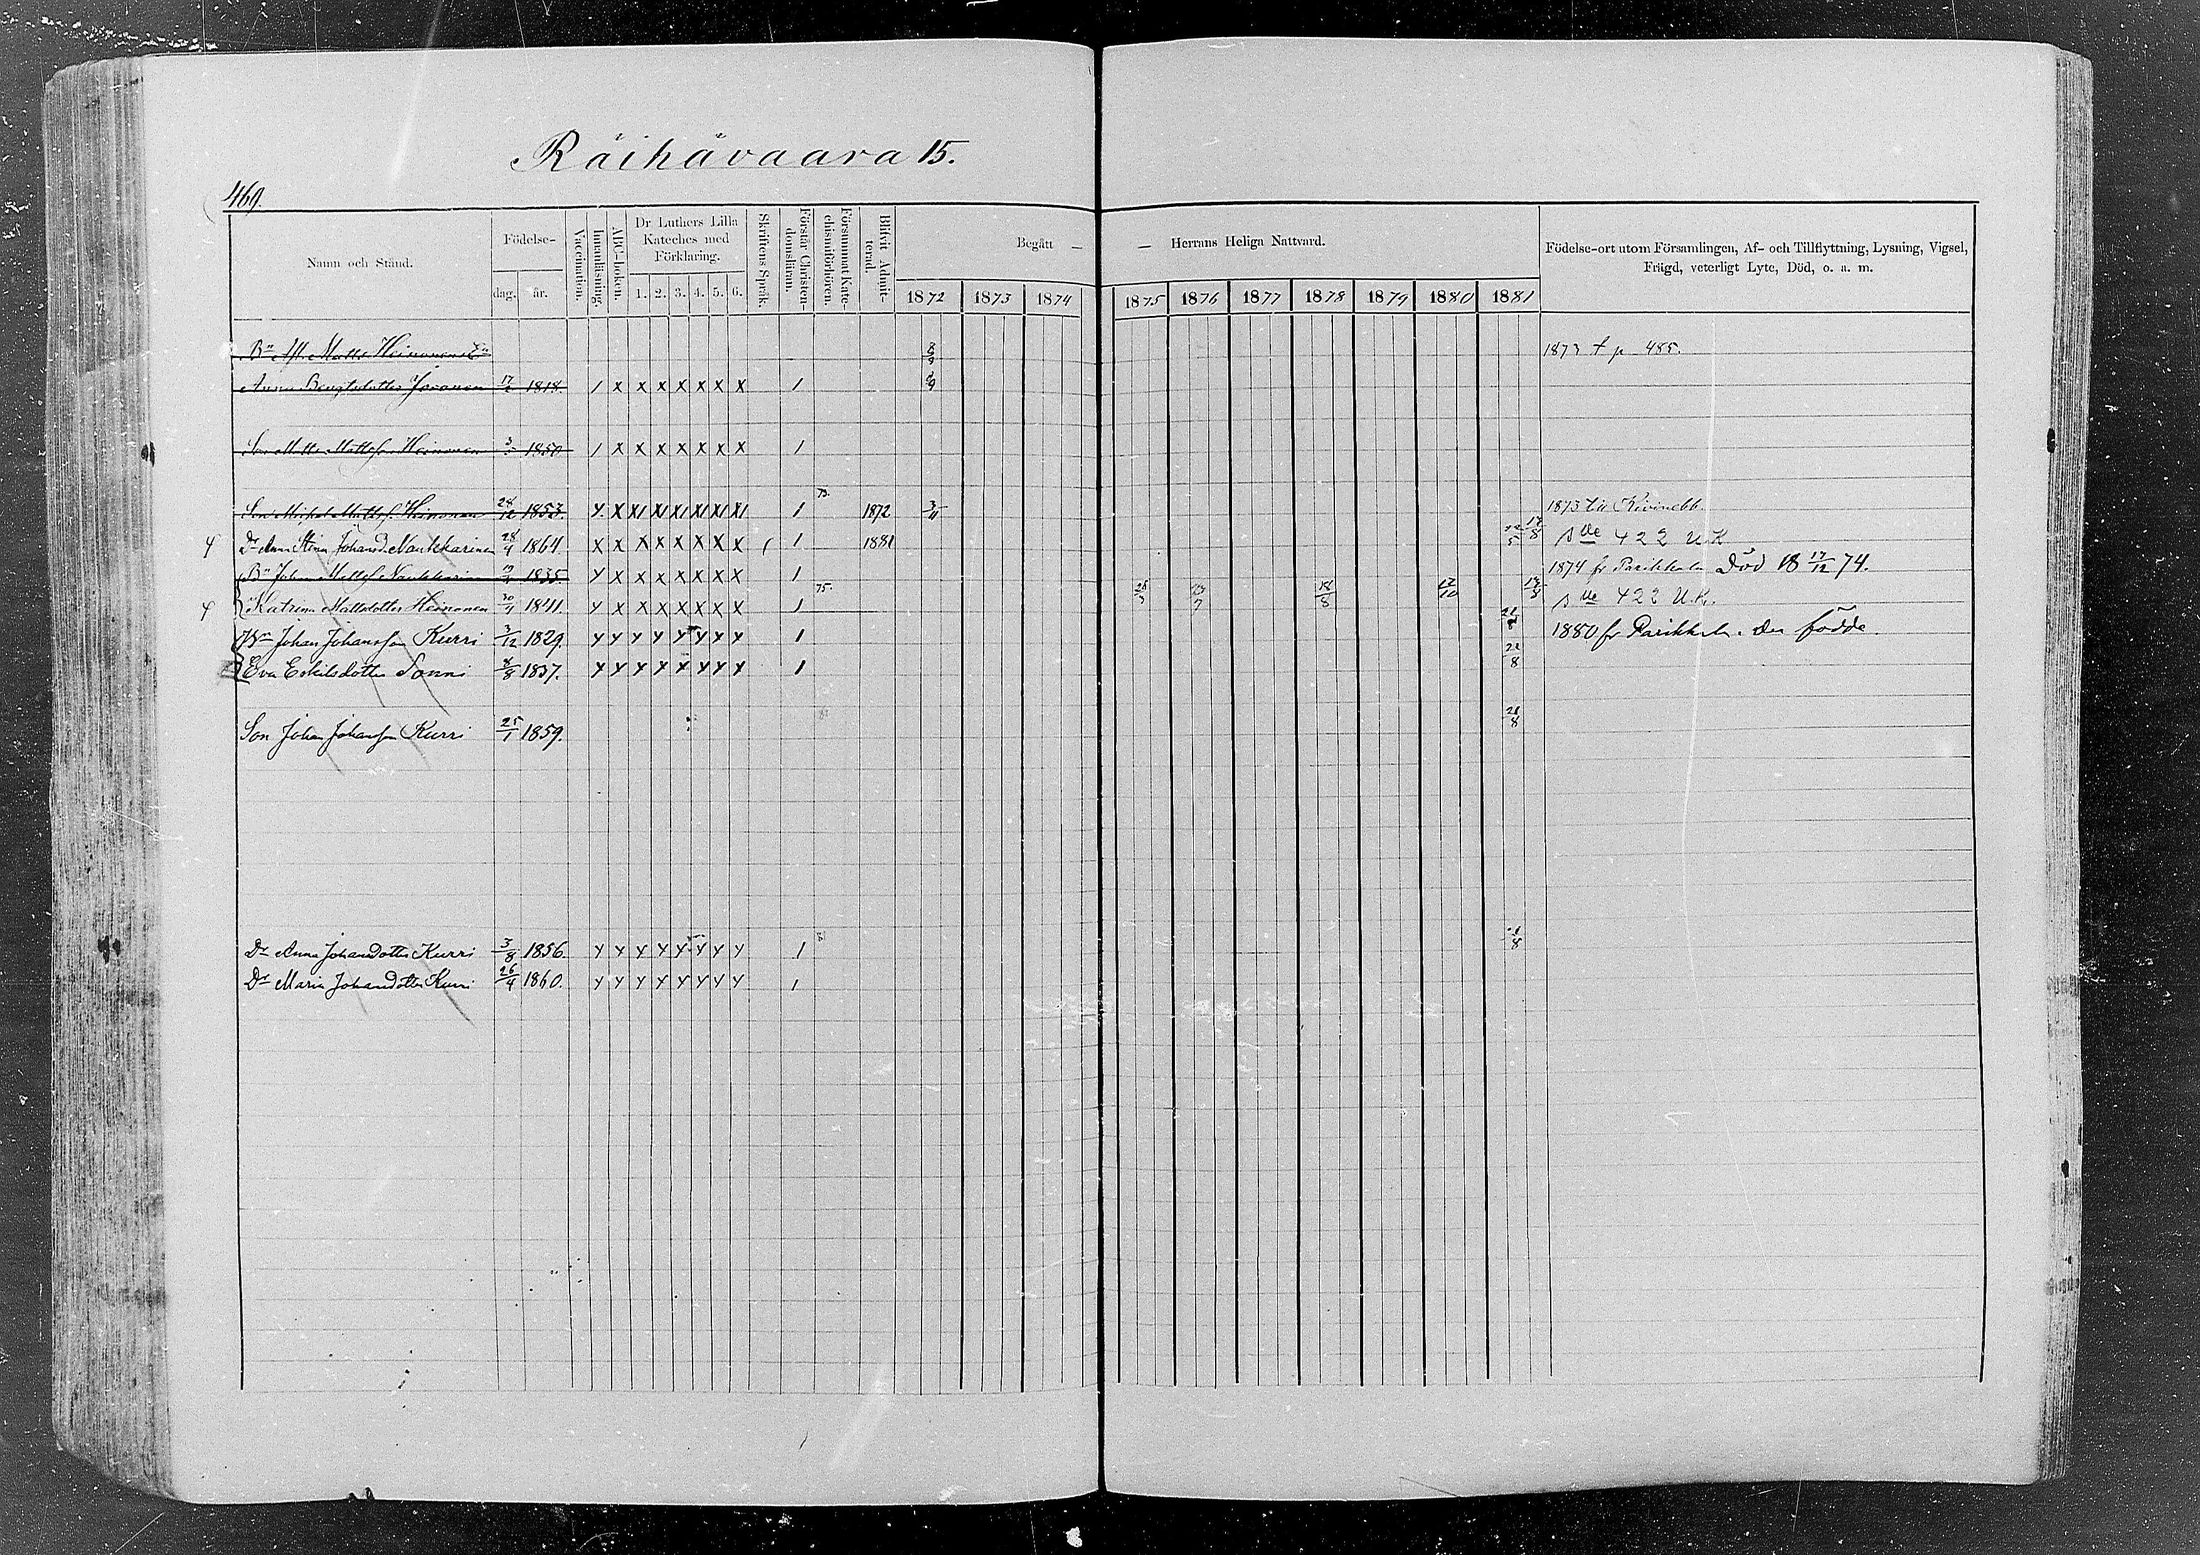 Räihävaara 15.
469.
Namn och Stånd.
Födelse-
dag. år.
Vaccination.
Innanläsning.
ABC-boken.
Dr Luthers Lilla Kateches med Förklaring.
1. 2. 3. 4. 5. 6.
Skriftens Språk.
Förstår Christen-domsläran.
Försummat Kate-chismiförhören.
Blifvit Admit-terad.
Begått — — Herrans Heliga Nattvard.
1872 1873 1874 1875 1876 1877 1878 1879 1880 1881
Födelse-ort utom Församlingen, Af- och Tillflyttning, Lysning, Vigsel,
Frägd, veterligt Lyte, Död, o. a. m.
Bn Afl. Matts Heinonens En 8/9 1873 f p 485.
Anna Bengtsdotter 17/2 1818. / x x x x x x x / 
Son Matts Mattsson Heinonen 3 1850 / x x x x x x x /
Son Mattss. Heinonen 28/12 1853. 1 73. 1872 3/11 1873 till Kivinebb
4 Dr Anna Stina Johansd. Naukkarinen 28/4 1864. x x x x x x x x ( 1 1881 17/8 s de 422 U.K
Bn Johan Mattss. Naukkarinen 1835. y x x x x x x x 1 1874 fr Parikkala Död 18 17/12 74.
4 Katrina Mattsdotter Heinonen 30 1841. y x x x x x x x 1 75. 18/8 s de 422 U.K.
Bn Johan Johansson Kurri 3/12 1829. y y y y y y y y 1 1880 fr Parikkala. der födde.
Eva Eskilsdotter Sonni 8/8 1837. y y y y x y y y 1 21/8
Son Johan Johansson Kurri 25/1 1859. 81 21/8
Dr Anna Johansdotter Kurri 3/8 1856. y y y y y y y y 1 81
Dr Maria Johansdotter Kurri 26/4 1860. y y y y y y y y 1